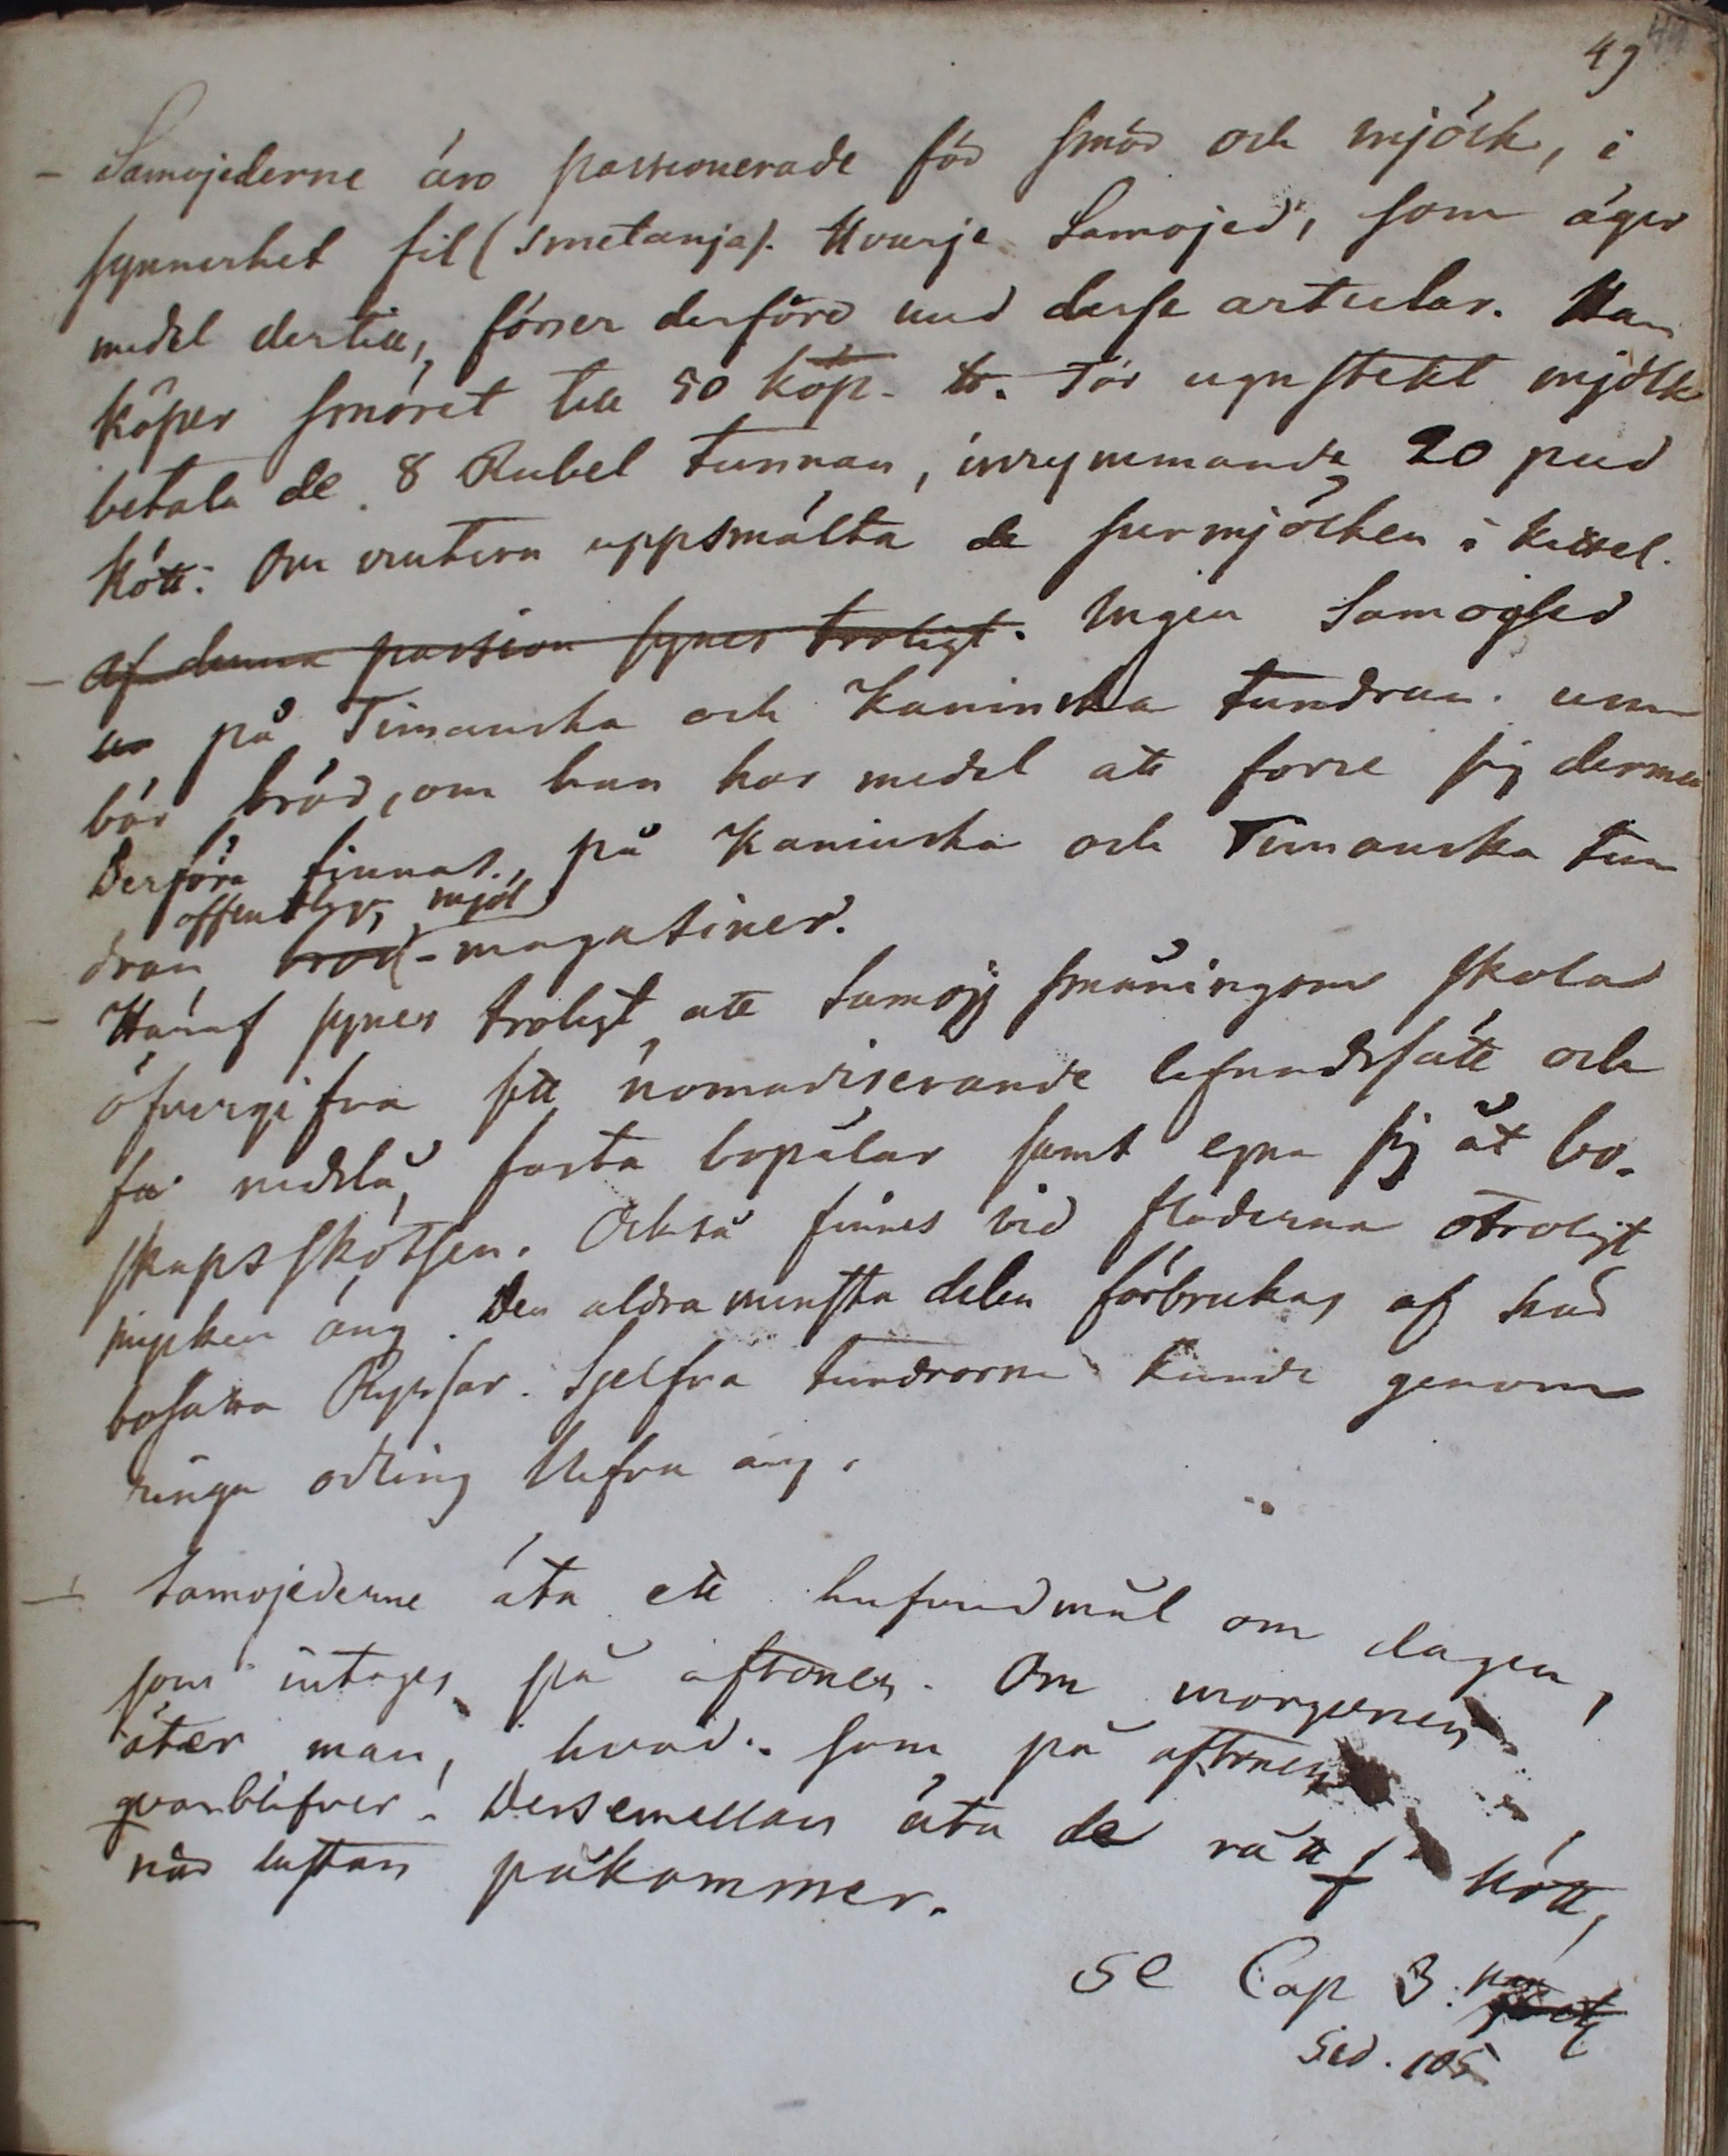 49
– Samojederne äro passionerade för smör och mjölk, i
synnerhet fil (smetanja). Hvarje Samojed, som äger
medel dertill, förser derföre med desse artielar. Han
köper smöret till 50 kop. För ugnstekt mjölk
betala de 8 Rubel tunnan, inrymmande 20 pud
kött. Om vintern uppsmälta de surmjölken i kittel.
– Af denna passion synes troligt. Ingen Samojed
på Timanska och Kaninska tundran um
bär bröd, om han har medel att förse sig dermed
Derföre finnas på Kaninska och Timanska tun
offentlige mjöl
dran bröd-magasiner.
– Häraf synes troligt att Samoj småningom skola
öfvergifva sitt nomadiserande lefnadssätt och
få nedslå fasta bopålar samt egna sig åt bo-
skapsskötsen. Också finnes vid floderna otroligt
mycken äng. Den aldraminsta delen förbrukas af här
bosatta Ryssar. Sjelfva tundrorne kunde genom
ringa odling blifva äng.
– Samojederne äta ett hufvudmål om dagen,
som intages på aftonen. Om morgonen
äter man, hvad som på aftonen
qvarblifver. Dessemellan äta de rått kött,
när lusten påkommer.
se Cap 3.
Sid. 105